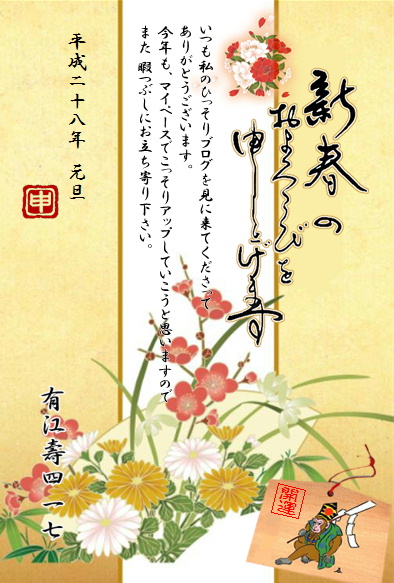 新春の
およろこびを
申し上げます
いつも私のひっそりブログを見に来てくださって
ありがとうございます。
今年も、マイペースでこっそりアップしていこうと思いますので
また 暇つぶしにお立ち寄り下さい。
平成二十八年 元旦
申
有江壽四一七
開運